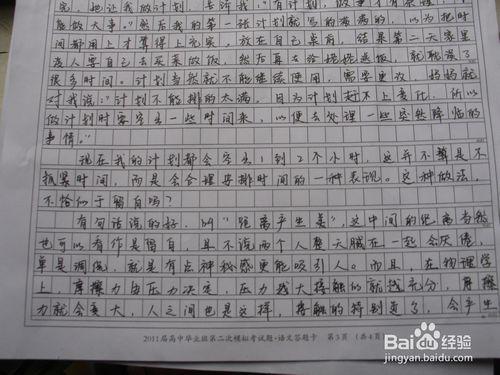 完，她让我做计划，告诉我：“有计划，做事才有条理，才
能做大事。”然后我的第一张计划就写的满满的，以为把时
间都用上才算得上充实，放在自己桌前，结果第二天家里
没人要自己去买菜做饭，然后再去给姥姥送饭，就耽误了
很多时间。计划当然就不能继续使用，需要更改，妈妈就
对我说：“计划不能排的太满，因为计划赶不上变化，所以
做计划时要空出一些时间来，以便去处理一些突然降临的
事情。”
现在我的计划都会空出1到2个小时，这并不算是不
抓紧时间，而是会合理安排时间的一种表现。这种做法，
不恰似于留白吗？
有句话说的好，叫“距离产生美”，这中间的距离当然
也可以看作是留白，且不说两个人整天腻在一起会厌倦，
单是调侃，就是有点神秘感更能吸引人。而且，在物理学
上，摩擦力由压力决定，压力越大接触的就越充分，摩擦
力就会变大，人之间也是这样，接触的特别近了，会产生
2011届高中毕业班第二次模拟考试题·语文答题卡 第3页 （共4页）
Baidu经验
jingyan.baidu.com